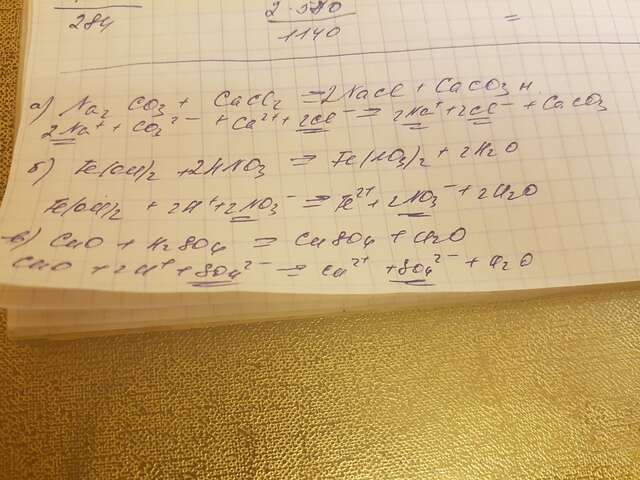 284
2·380
1140
=
а) Na2 CO3 + CaCl2 = 2NaCl + CaCO3 н.
2Na⁺ + CO3²⁻ + Ca²⁺ + 2Cl⁻ = 2Na⁺ + 2Cl⁻ + CaCO3
б) Fe(OH)2 + 2HNO3 = Fe(NO3)2 + 2H2O
Fe(OH)2 + 2H⁺ + 2NO3⁻ = Fe²⁺ + 2NO3⁻ + 2H2O
в) CuO + H2SO4 = CuSO4 + H2O
CuO + 2H⁺ + SO4²⁻ = Cu²⁺ + SO4²⁻ + H2O